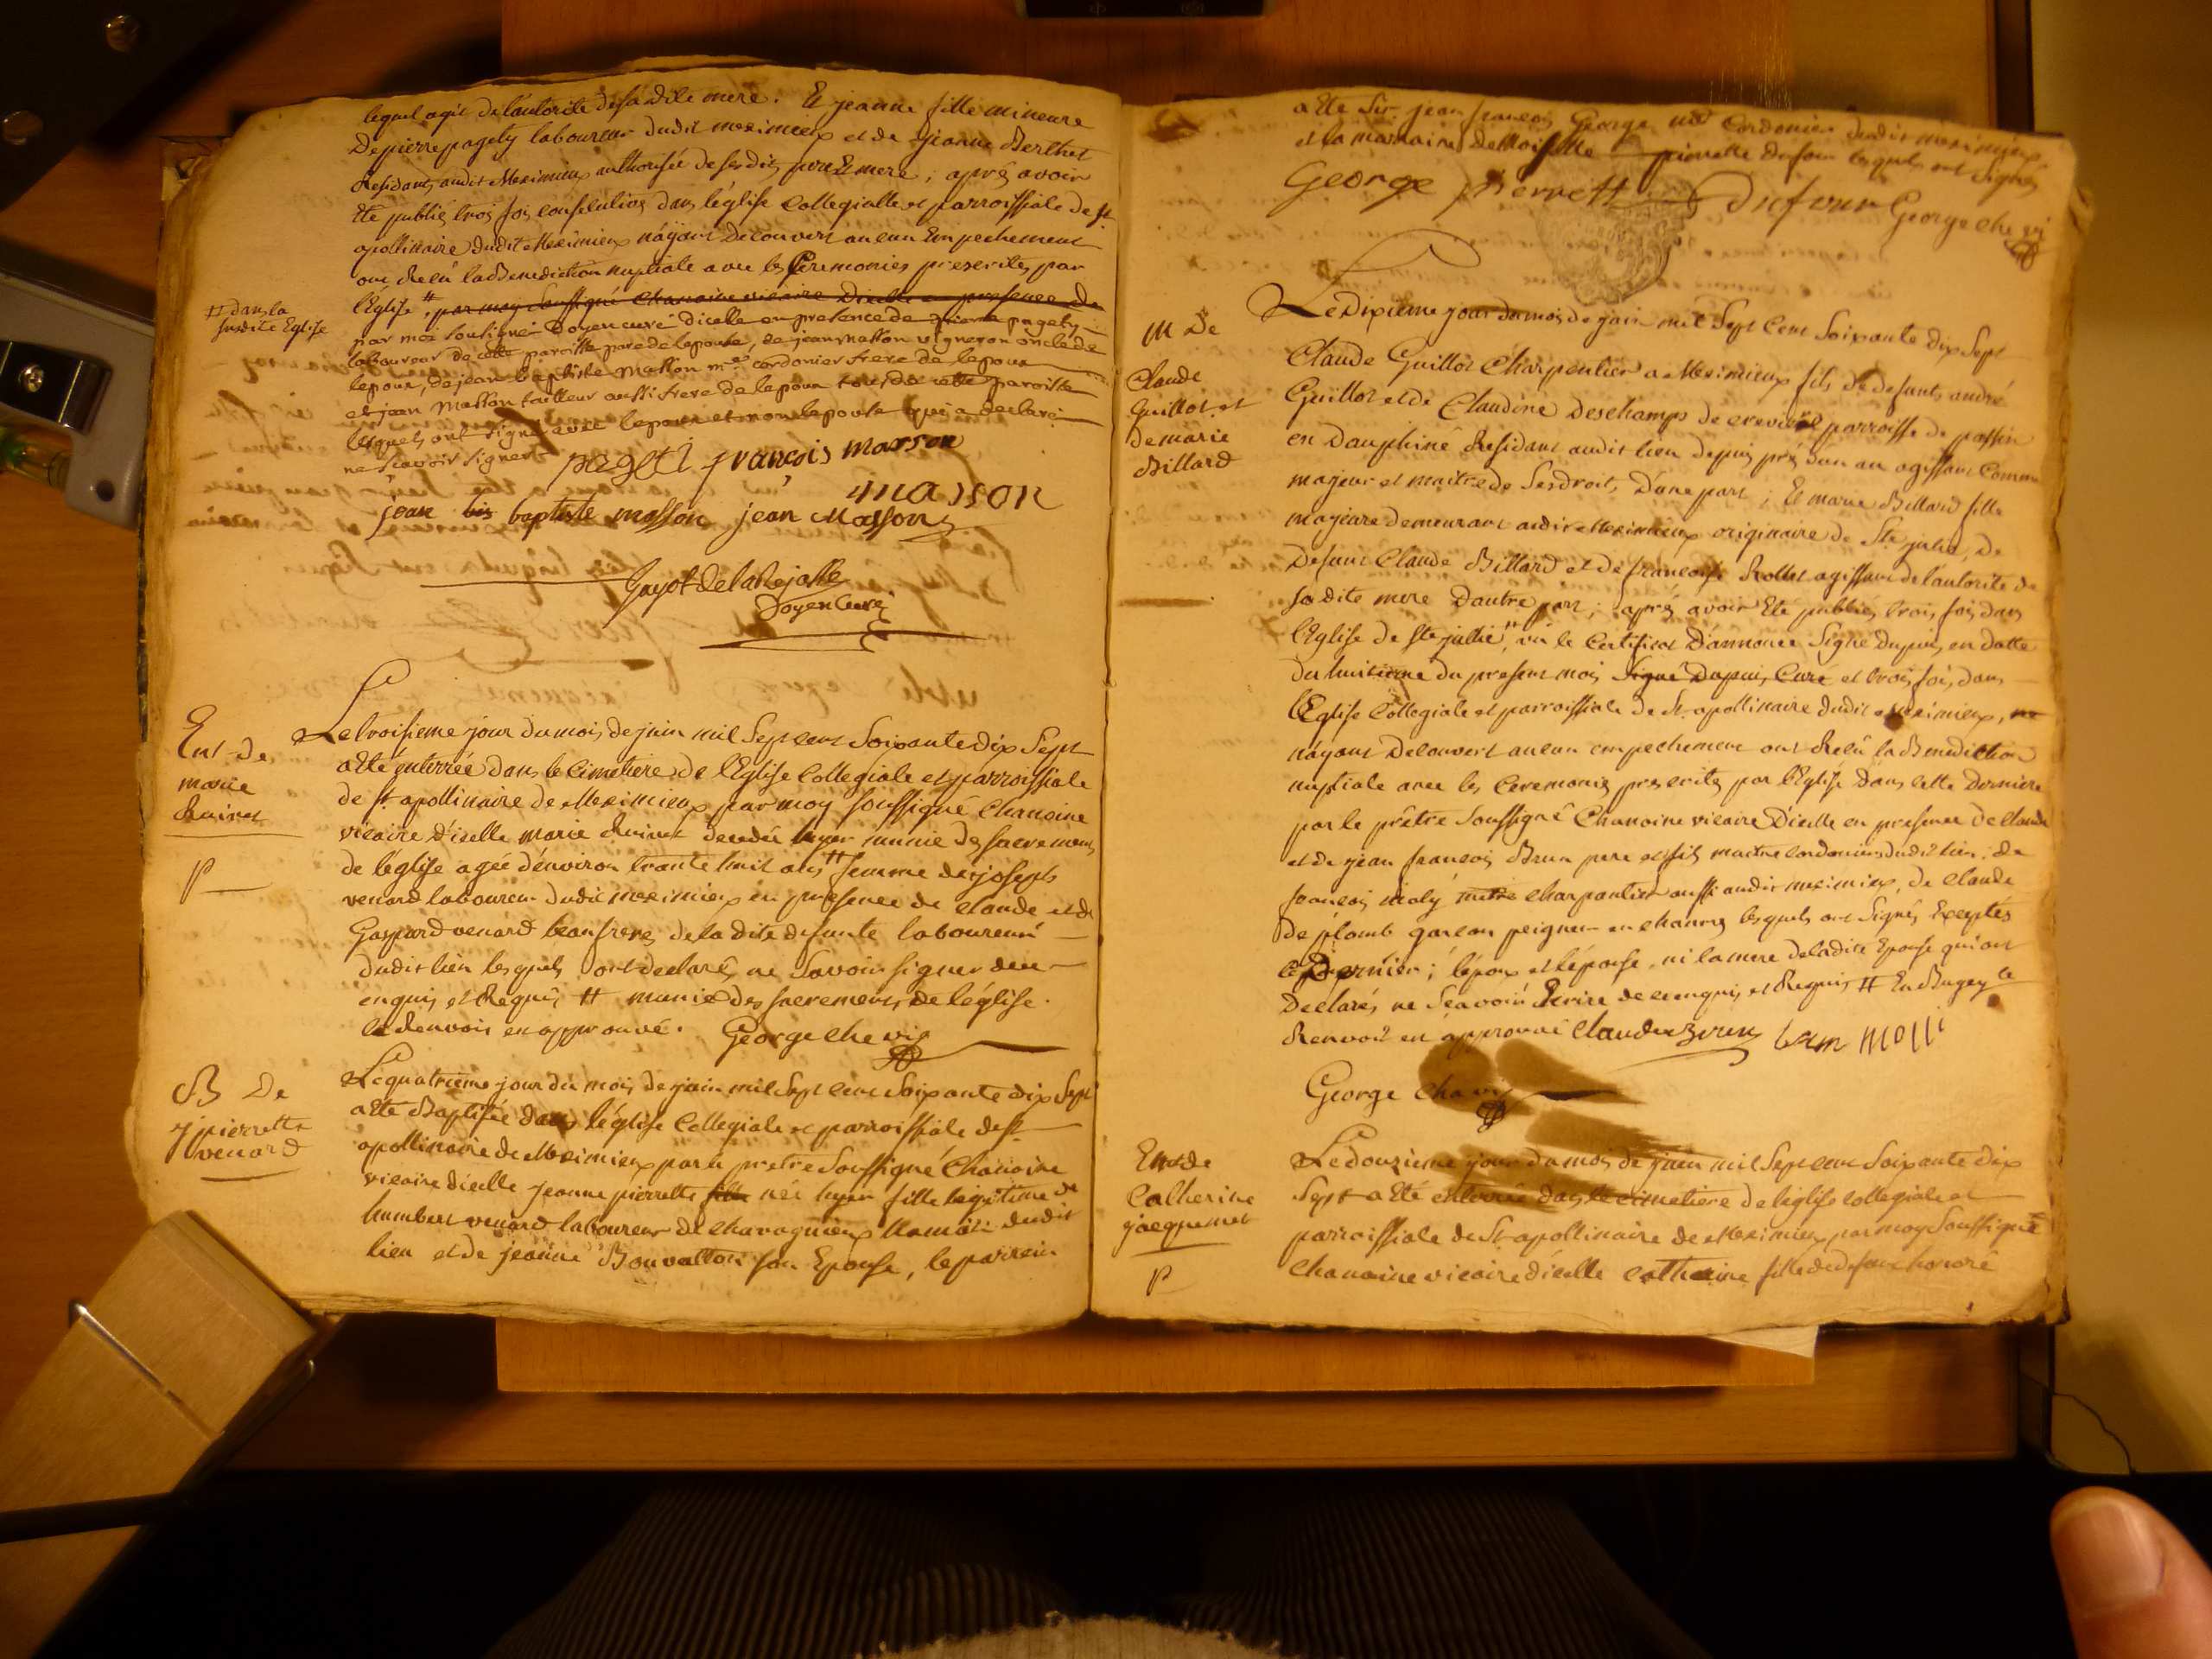 lequel agit de l'autorite de sa dite mere. Et jeanne fille mineure
De pierre pagety laboureur dudit meximieux et de jeanne Berthet
Residants audit Meximieux authorisée de sesdits pere & mere ; aprés avoir
Eté publiés trois fois consécutives dans l'église Collegialle et parroissiale de St
apollinaire dudit Meximieux n'ayant Decouvert aucun Empechement
ont Reçû la Benediction nuptiale avec les Ceremonies prescrites par
l'Eglise # par moy soussigné Chanoine vicaire Dicelle en presence de
# Dans la
susdite Eglise
par moi soussigné Doyen curé dicelle en presence de pierre pagety
laboureur de cette paroisse pere de lepouse, de jean masson vigneron oncle de
lepoux, de jean baptiste masson me cordonier frere de lepoux
et jean masson tailleur aussi frere de lepoux tous de cette paroisse
lesquels ont signé avec lepoux et non lepouse qui a declaré
ne scavoir signer
pageti françois masson
masson
jean bis baptiste masson jean Masson
Guyot de la
Doyen Curé
Ent. de
marie
Ruinet
P
Le troisieme jour du mois de juin mil Sept cent Soixante dix Sept
a Eté enterrée dans le Cimetiere de l'Eglise Collegiale et parroissiale
de St. apollinaire de Meximieux par moy soussigné Chanoine
vicaire D'icelle marie Ruinet decedée hyer munie des sacremens
de l'église agée d'environ trante huit ans # femme de joseph
venard laboureur dudit meximieux en presence de claude et de
Gaspard venard beaufreres de la dite defunte laboureurs
dudit lieu lesquels ont declaré ne Savoir signer de ce
enquis et Requis # munie des sacrements de l'église.
le Renvoir en approuvé. George che vic
B De
j pierrette
venard
Le quatrieme jour du mois de juin mil Sept cent Soixante dix Sept
a Eté Baptisée dans l'église Collegiale et parroissiale de St
apollinaire de Meximieux par le pretre Soussigné Chanoine
vicaire dicelle jeanne pierrette fille née hyer fille legitime de
humbert venard laboureur de charagnieux hamau dudit
lieu et de jeanne Bouvallon son Epouse, le parrein
a Eté Sr. jean françois George me Cordonier dudit meximieux
et la marraine demoiselle pierrette dufour lesquels ont signés
George pierrette Dufour George che vi
M De
Claude
Guillot et
de marie
Billard
Le Dixieme jour du mois de juin mil Sept Cent Soixante dix Sept
Claude Guillot Charpentier a Meximieux fils de defunts andré
Guillot et de Claudine Deschamps de parroisse de passin
en Dauphiné Residant audit lieu depuis prés d'un an agissant Comme
majeur et maitre de Ses droits D'une part ; Et marie Billard fille
majeure demeurant audit Meximieux originaire de Ste julie, De
Defunt Claude Billard et de françoise Rollet agissant de l'autorité de
sa dite mere D'autre part ; aprés avoir Eté publiés trois fois dans
l'Eglise de Ste jullie # vû le Certificat D'annonce Signé Dupuis en datte
du huitieme du present mois Signé Dupuis, Curé et trois fois dans
l'Eglise Collegiale et parroissiale de St. apollinaire dudit Meximieux, ne
n'ayant Decouvert aucun empechement ont Reçû la Benediction
nuptiale avec les Ceremonies prescrites par l'Eglise Dans cette Derniere
par le prêtre Soussigné Chanoine vicaire D'icelle en presence de claude
et de jean françois Brun pere et fils maitre cordoniers dudit lieu ; de
françois moly metre charpantier aussi audit meximieux, de claude
de plomb garcon peigneur en chanvre lesquels ont Signés Exceptés
le Dernier ; l'époux et l'épouse, ni la mere de la dite Epouse qui ont
Declarés ne Scavoir Ecrire de ce enquis et Requis # En Bugey le
Renvoit en approuvé Claude brun brun molli
George che vic
Ent de
Catherine
jacquemet
P
Le douzieme jour du mois de juin mil Sept cent Soixante dix
Sept a Eté enterrée dans le cimetiere de l'église collegiale et
parroissiale de St. apollinaire de Meximieux par moy Soussigné
Chanoine vicaire d'icelle catherine fille de defunt honoré